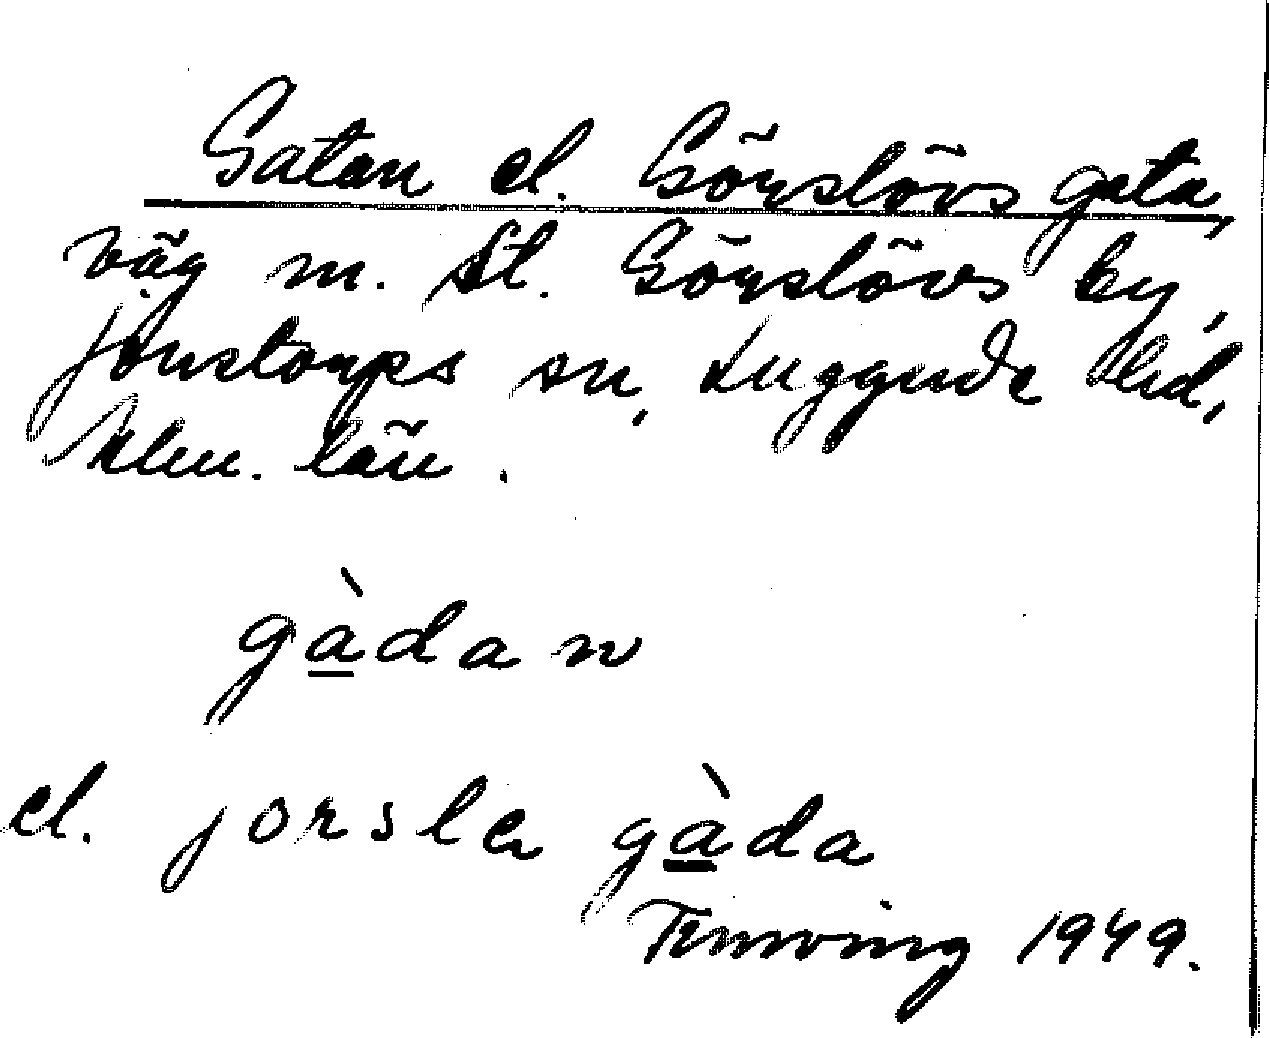 Gatan el. Görslövs gata,
väg m. St. Görslövs by,
Jonstorps sn, Luggude hd,
Mlm. län.
gàdan
el. jorsle gàda
1949.